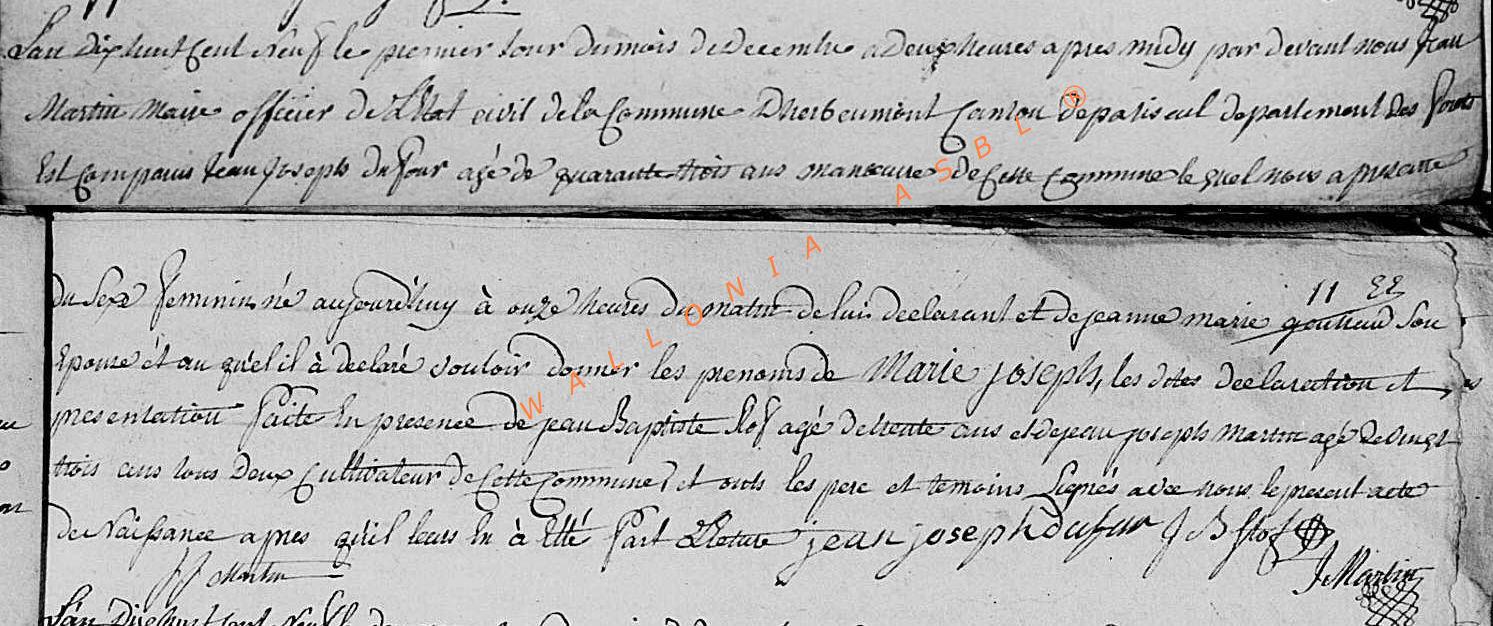 L'an Dix huit Cent Neuf le premier Jour du mois de Decembre a Deux heures apres midy par devant nous Jean
Martin Maire officier de L'Etat civil de la Commune D'herbeumont Canton de paliseul departement des forets
Est Comparus Jean Joseph Dufour agé de quarante trois ans manœuvre de Cette Commune le quel nous a presenté
11
du Sexe feminin né aujourd'huy à onze heures du matin de lui declarant et de jeanne marie Son
Epouse et au quel il à declaré vouloir donner les prenoms de Marie joseph, les dites declaration et
presentation faite En presence de jean Baptiste agé de trente ans et de jean joseph Martin agé de vingt
trois ans tous Deux Cultivateur de Cette Commune, et onts les pere et temoins Signés avec nous le present acte
de Naissance apres qu'il leurs En à Eté fait Lecture jean joseph dufur J B
JJ Martin
J Martin
L'an Dix huit Cent Neuf le
WALLONIA ASBL ®